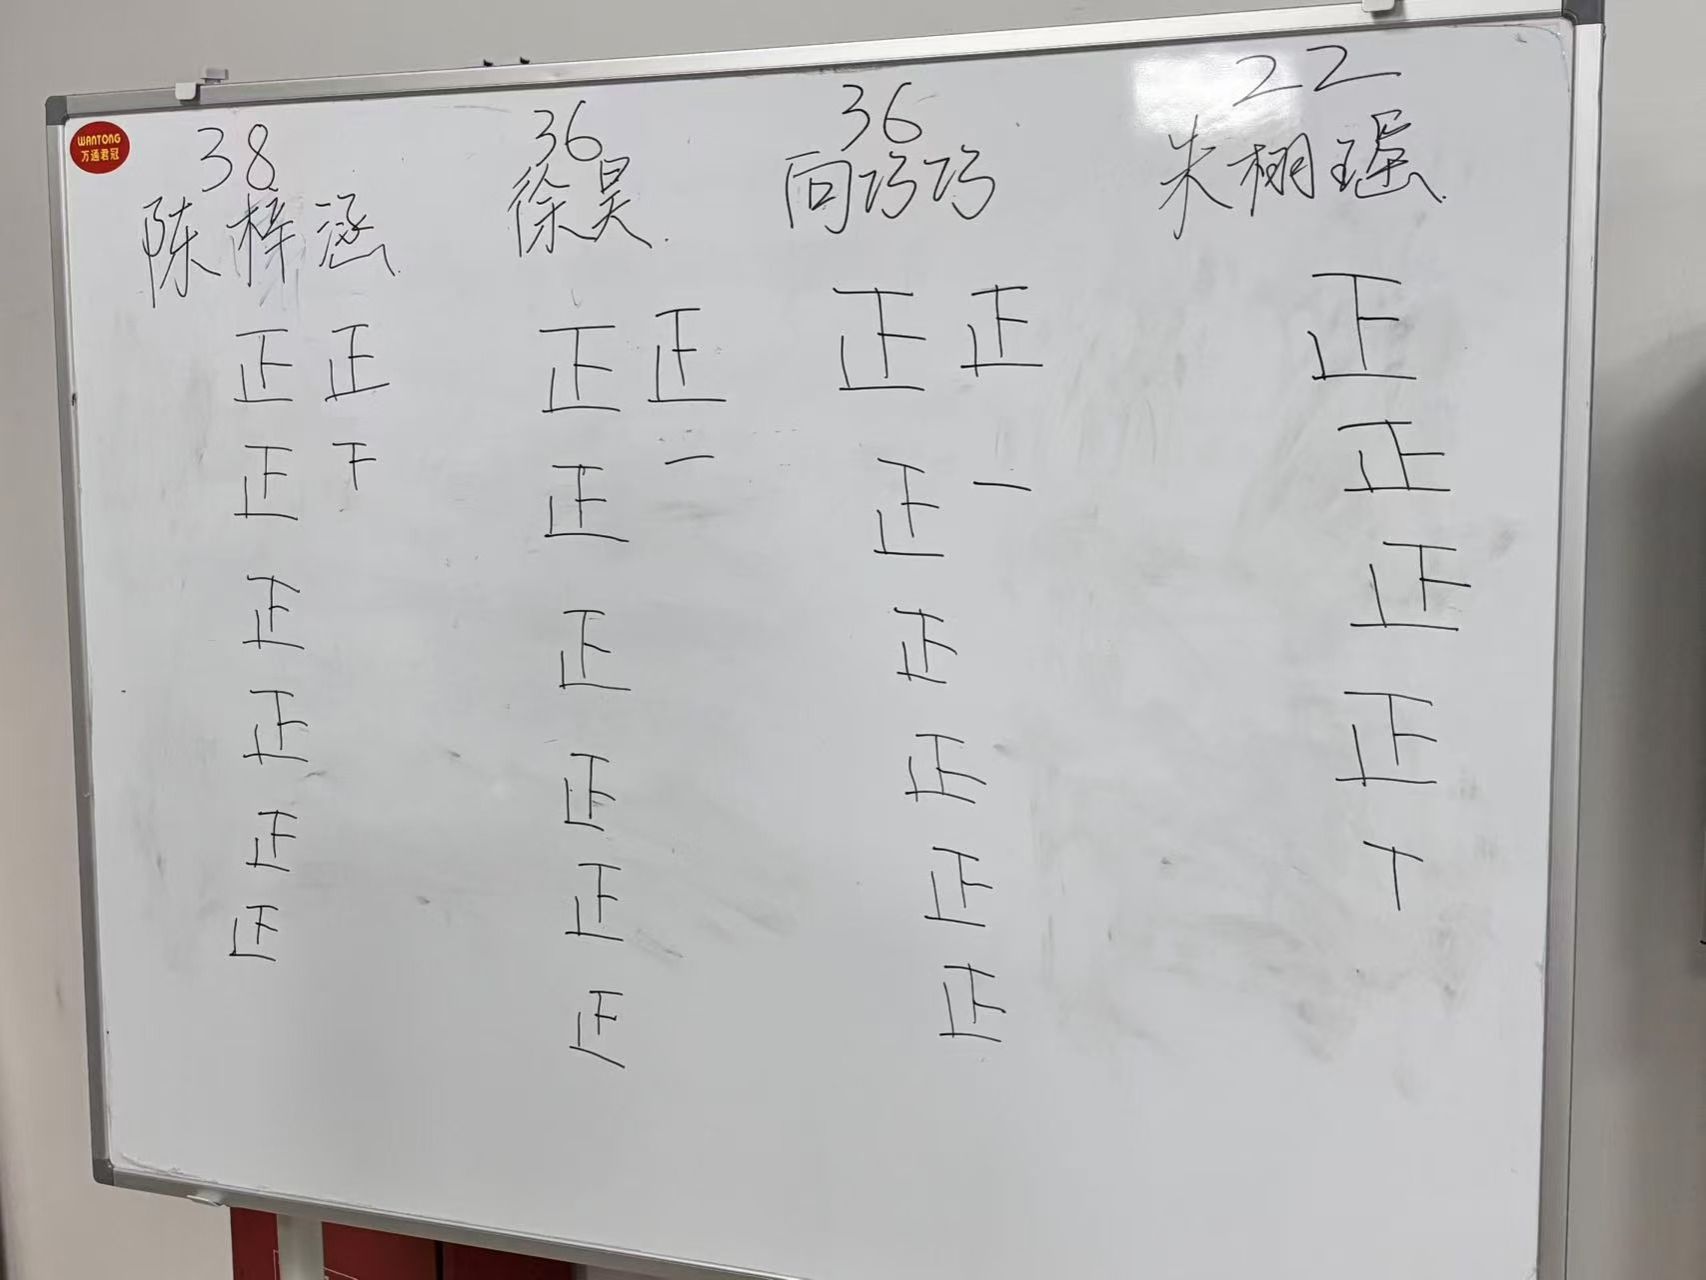 WANTONG
万通君冠
38 36 36 22
陈梓涵 徐昊 向巧巧 朱栩瑶
正 正 正 正 正 正 正
正 下 正 一 正 一 正
正 正 正 正
正 正 正 正
正 正 正 丅
正 正 正